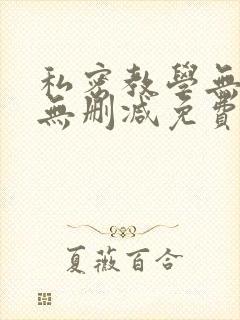 私密教學無
無刪減免費
夏薇百合